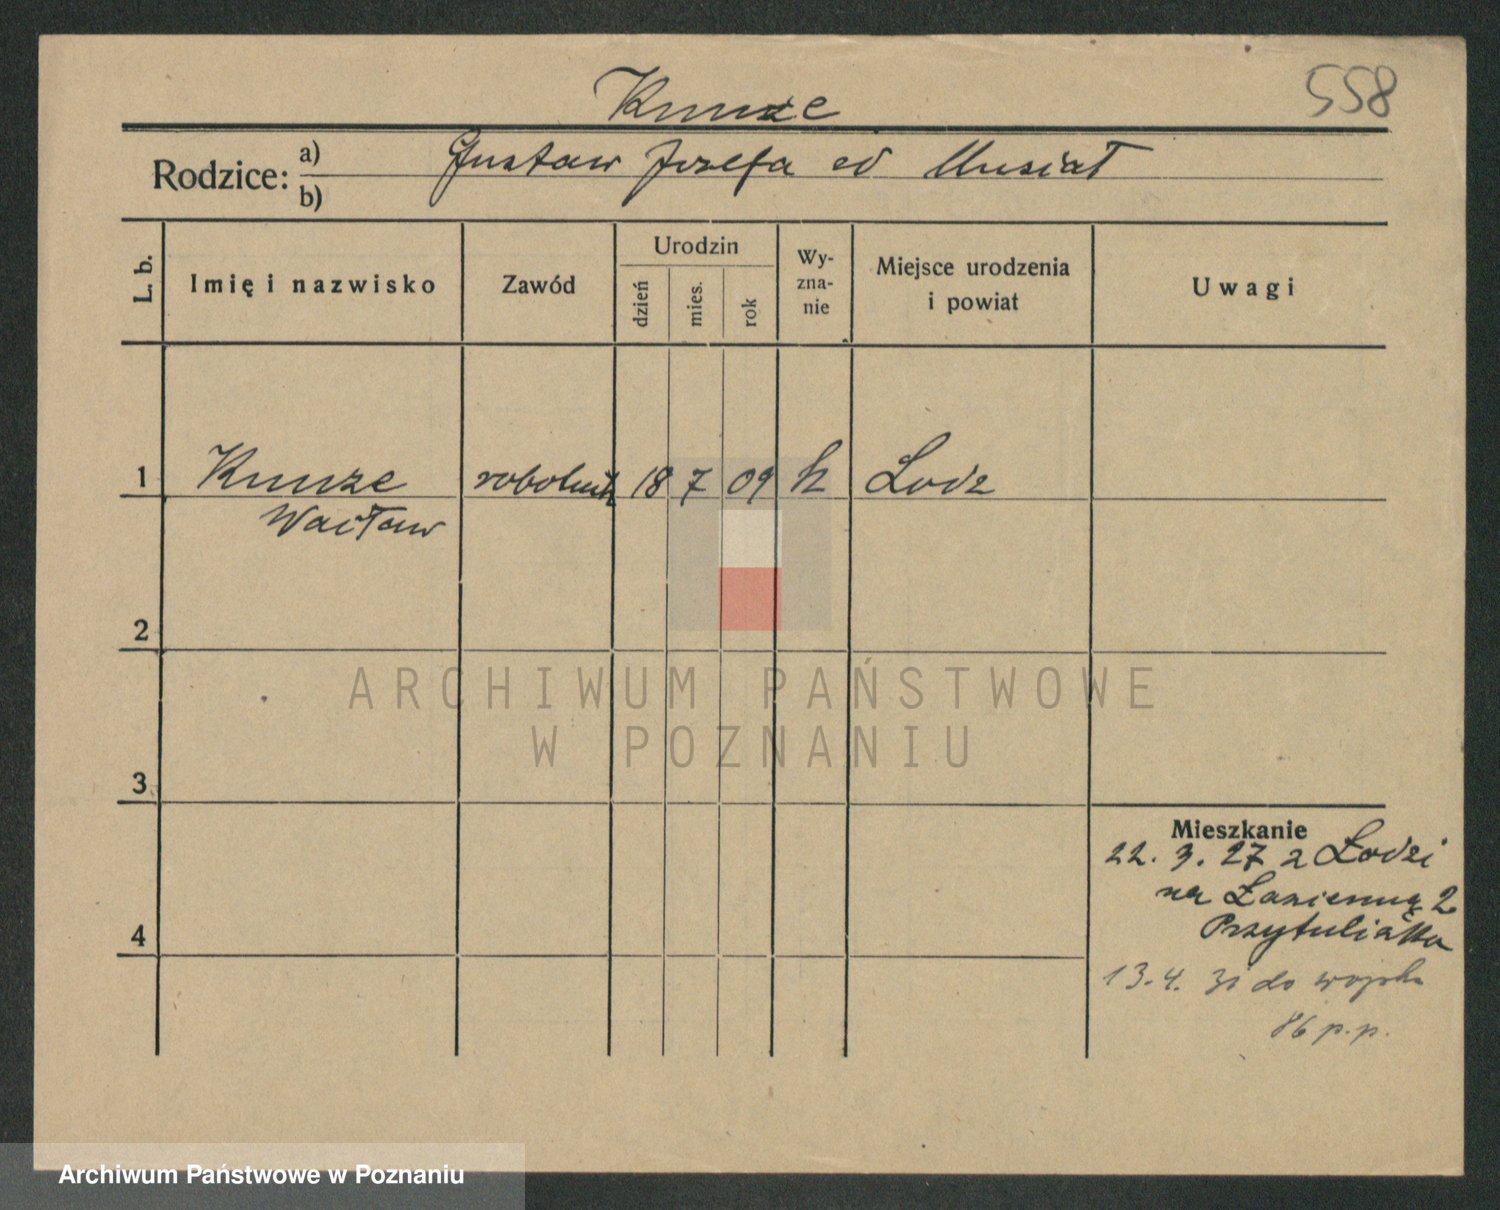 558
Kunze
Rodzice: a) b)
Gustaw Józefa od Musiał
L. b.
Imię i nazwisko
Zawód
Urodzin
dzień
mies.
rok
Wy-
zna-
nie
Miejsce urodzenia
i powiat
Uwagi
1
Kunze
Wacław
robotnik
18
7
09
Łodz
2
3
4
Mieszkanie
22. 3. 27 z Łodzi
na Łazienną 2
Przytuliska
13.4. 31 do wojska
86 p.p.
ARCHIWUM PAŃSTWOWE
W POZNANIU
Archiwum Państwowe w Poznaniu